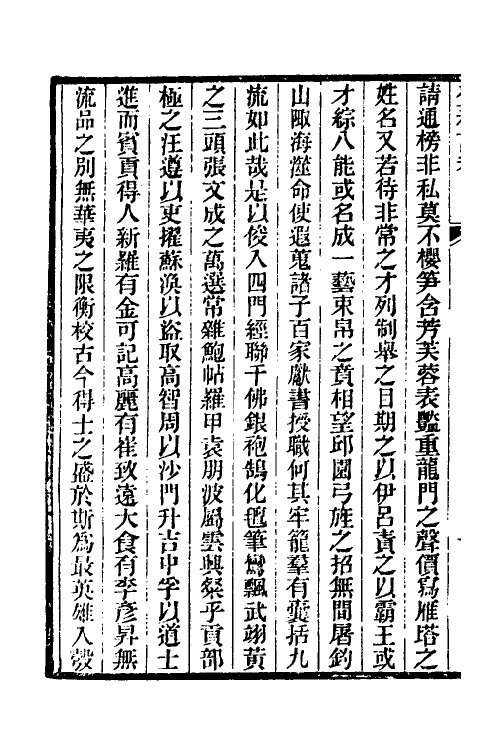 請通榜非私莫不櫻笋含芳芙蓉表豔重龍門之聲價寫雁塔之
姓名又若待非常之才列制舉之目期之以伊呂責之以霸王或
才綜八能或名成一藝束帛之賁相望邱園弓旌之招無間屠釣
山陬海澨命使遐蒐諸子百家獻書授職何其牢籠羣有囊括九
流如此哉是以俊入四門經聯千佛銀袍鵠化毡筆鸞飄武翊黃
之三頭張文成之萬選常雜鮑帖羅甲袁朋波屬雲興粲乎貢部
極之汪遵以吏擢蘇渙以盜取高智周以沙門升吉中孚以道士
進而賓貢得人新羅有金可記高麗有崔致遠大食有李彦昇無
流品之別無華夷之限衡校古今得士之盛於斯爲最英雄入彀